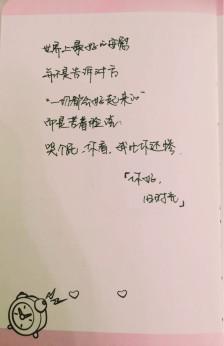 世界上最好的安慰
并不是告诉对方
“一切都会好起来的”
而是苦着脸说
哭个屁,你看,我比你还惨
「你好,
旧时光」